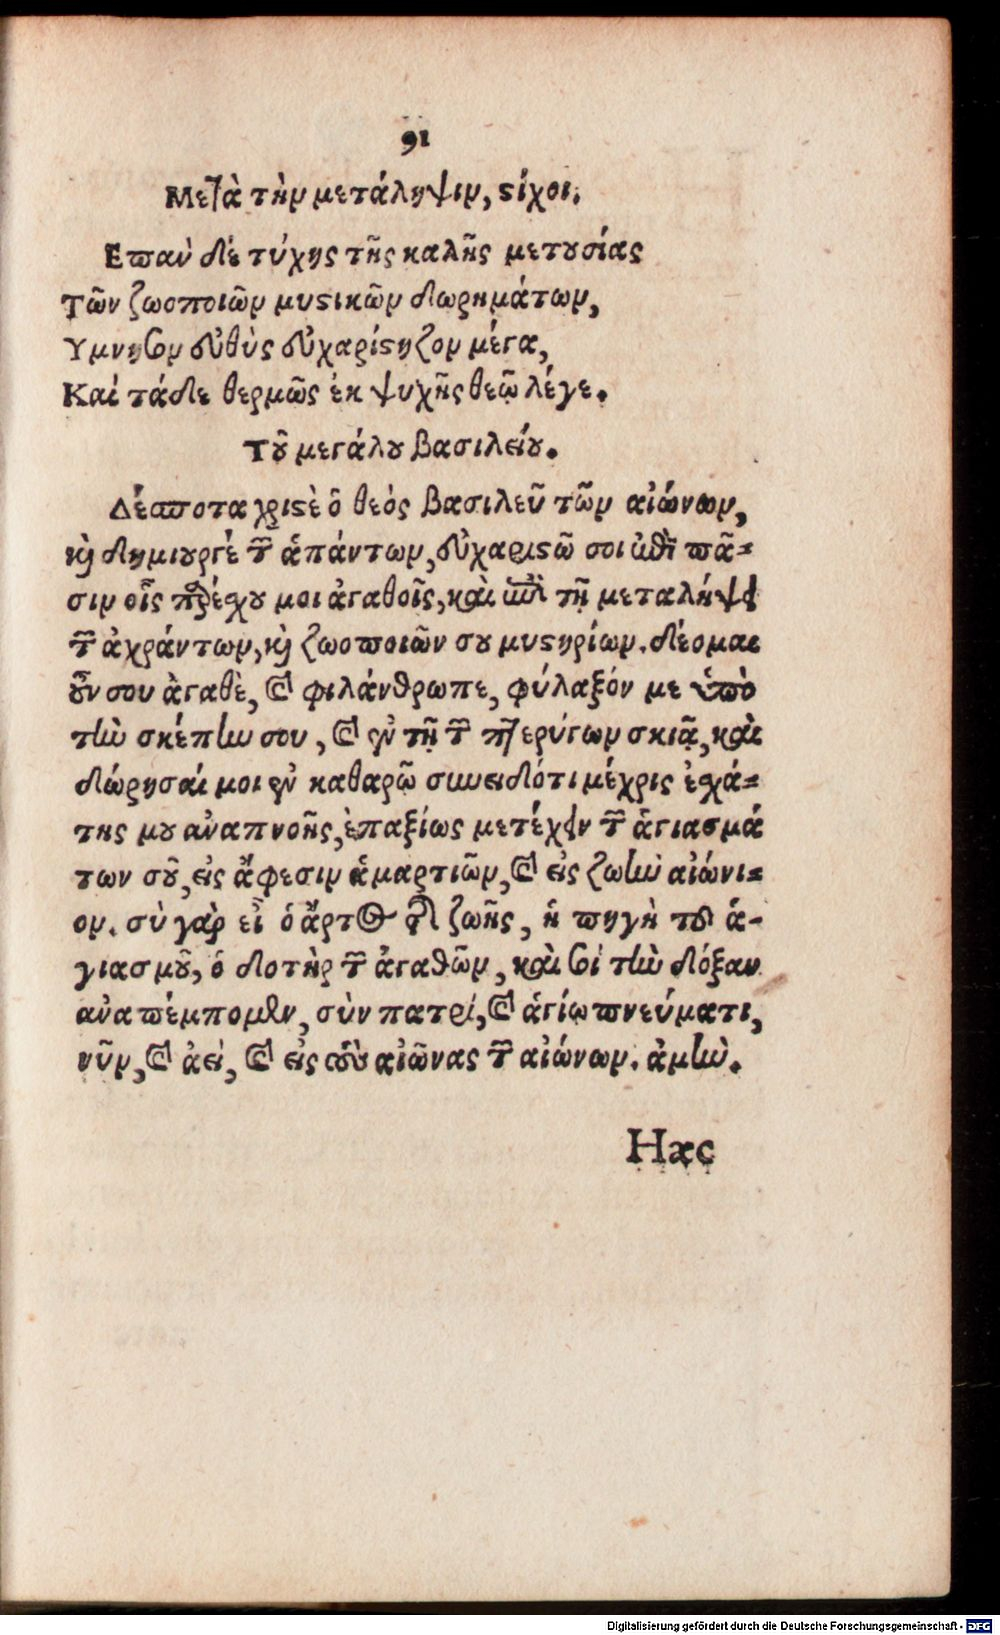 91
Μετὰ τὴν μετάληψιν, στίχοι.
Επαν δὲ τύχης τῆς καλῆς μετουσίας
Τῶν ζωοποιῶν μυστικῶν δωρημάτων,
Υμνησον εὐθὺς εὐχαρίστησον μέγα,
Καὶ τάδε θερμῶς ἐκ ψυχῆς θεῷ λέγε.
Τοῦ μεγάλου βασιλείου.
Δέσποτα χριστὲ ὁ θεὸς βασιλεῦ τῶν αἰώνων,
καὶ δημιουργὲ τῶν ἁπάντων, εὐχαριστῶ σοι ἐπὶ πᾶ-
σιν οἷς παρέχου μοι ἀγαθοῖς, καὶ ἐπὶ τῇ μεταλήψει
τῶν ἀχράντων, καὶ ζωοποιῶν σου μυστηρίων. δέομαι
οὖν σου ἀγαθὲ, καὶ φιλάνθρωπε, φύλαξόν με ὑπὸ
τὴν σκέπην σου, καὶ ἐν τῇ τῶν πτερύγων σκιᾷ, καὶ
δώρησαί μοι ἐν καθαρῷ συνειδότι μέχρις ἐσχά-
της μου ἀναπνοῆς, ἐπαξίως μετέχειν τῶν ἁγιασμά
των σοῦ, εἰς ἄφεσιν ἁμαρτιῶν, καὶ εἰς ζωὴν αἰώνι-
ον. σὺ γὰρ εἶ ὁ ἄρτος τῆς ζωῆς, ἡ πηγὴ τοῦ ἁ-
γιασμοῦ, ὁ δοτὴρ τῶν ἀγαθῶν, καὶ σοὶ τὴν δόξαν
ἀναπέμπομεν, σὺν πατρί, καὶ ἁγίῳ πνεύματι,
νῦν, καὶ ἀεὶ, καὶ εἰς τοὺς αἰῶνας τῶν αἰώνων. ἀμὴν.
Hæc
Digitalisierung gefördert durch die Deutsche Forschungsgemeinschaft - DFG